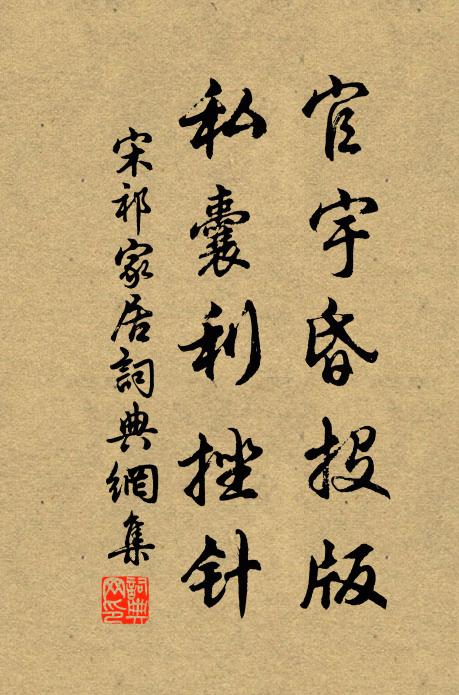 官宇昏投版
私囊利挫针
宋祁家居詞典網集
詞典網印